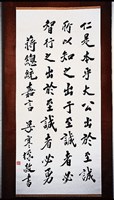 仁是本乎大公出於至誠
所以知之出於至誠者必
智行之出於至誠者必勇
蔣總統嘉言 梁寒操敬書